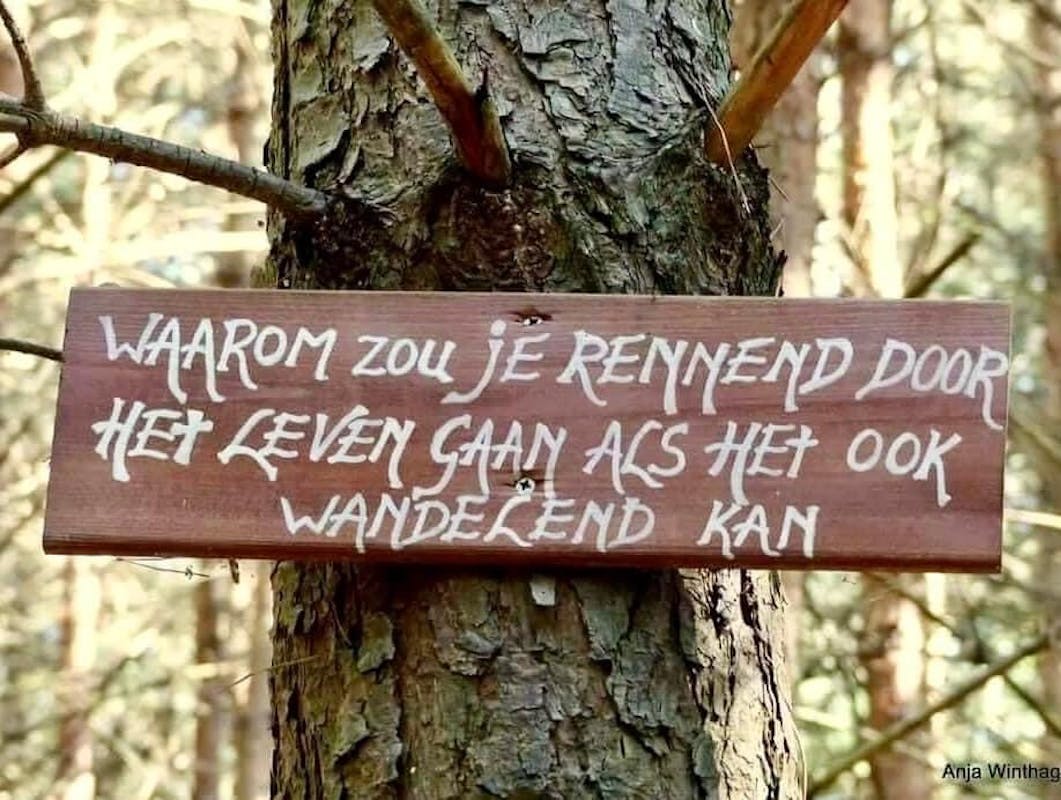 WAAROM ZOU JE RENNEND DOOR
HET LEVEN GAAN ALS HET OOK
WANDELEND KAN
Anja Winthag